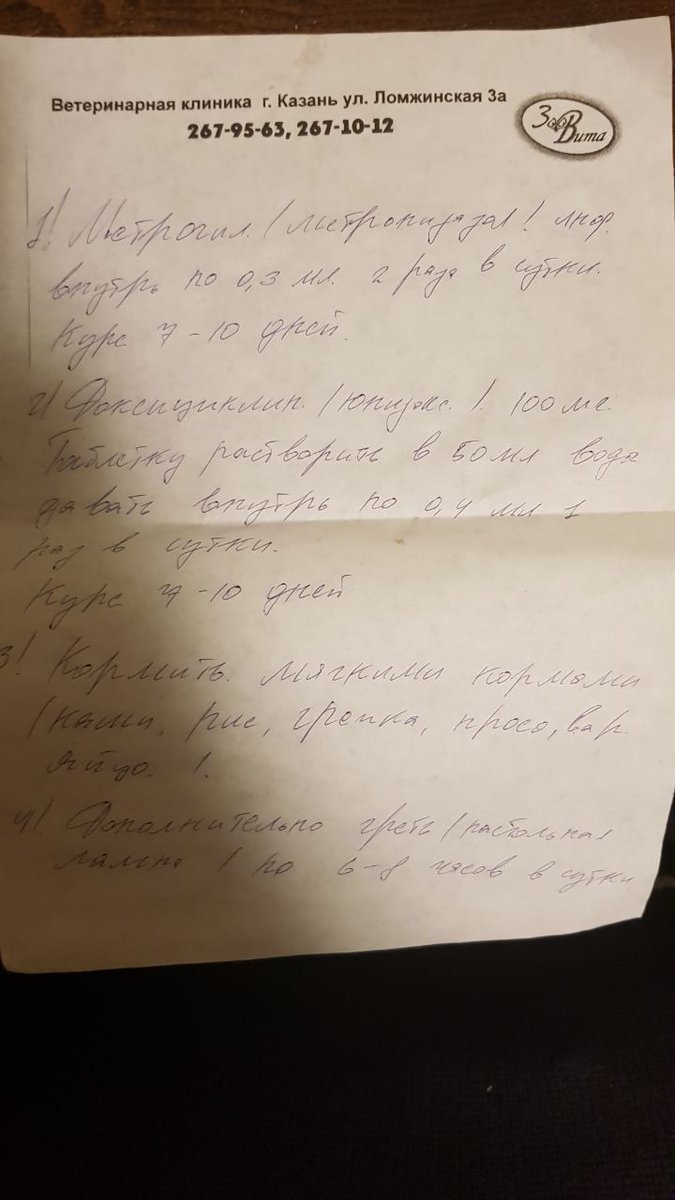 Ветеринарная клиника г. Казань ул. Ломжинская 3а
267-95-63, 267-10-12
ЗооВита
1) Метрогил (метронидазол) инф.
внутрь по 0,3 мл. 2 раза в сутки.
Курс 7-10 дней.
2) Доксициклин. (юнидокс.). 100 мг.
Таблетку растворить в 50 мл воды
давать внутрь по 0,4 мл 1
раз в сутки.
Курс 7-10 дней
3) Кормить мягкими кормами
(каши, рис, гречка, просо, вар.
яйцо.).
4) Дополнительно греть (настольная
лампа) по 6-8 часов в сутки